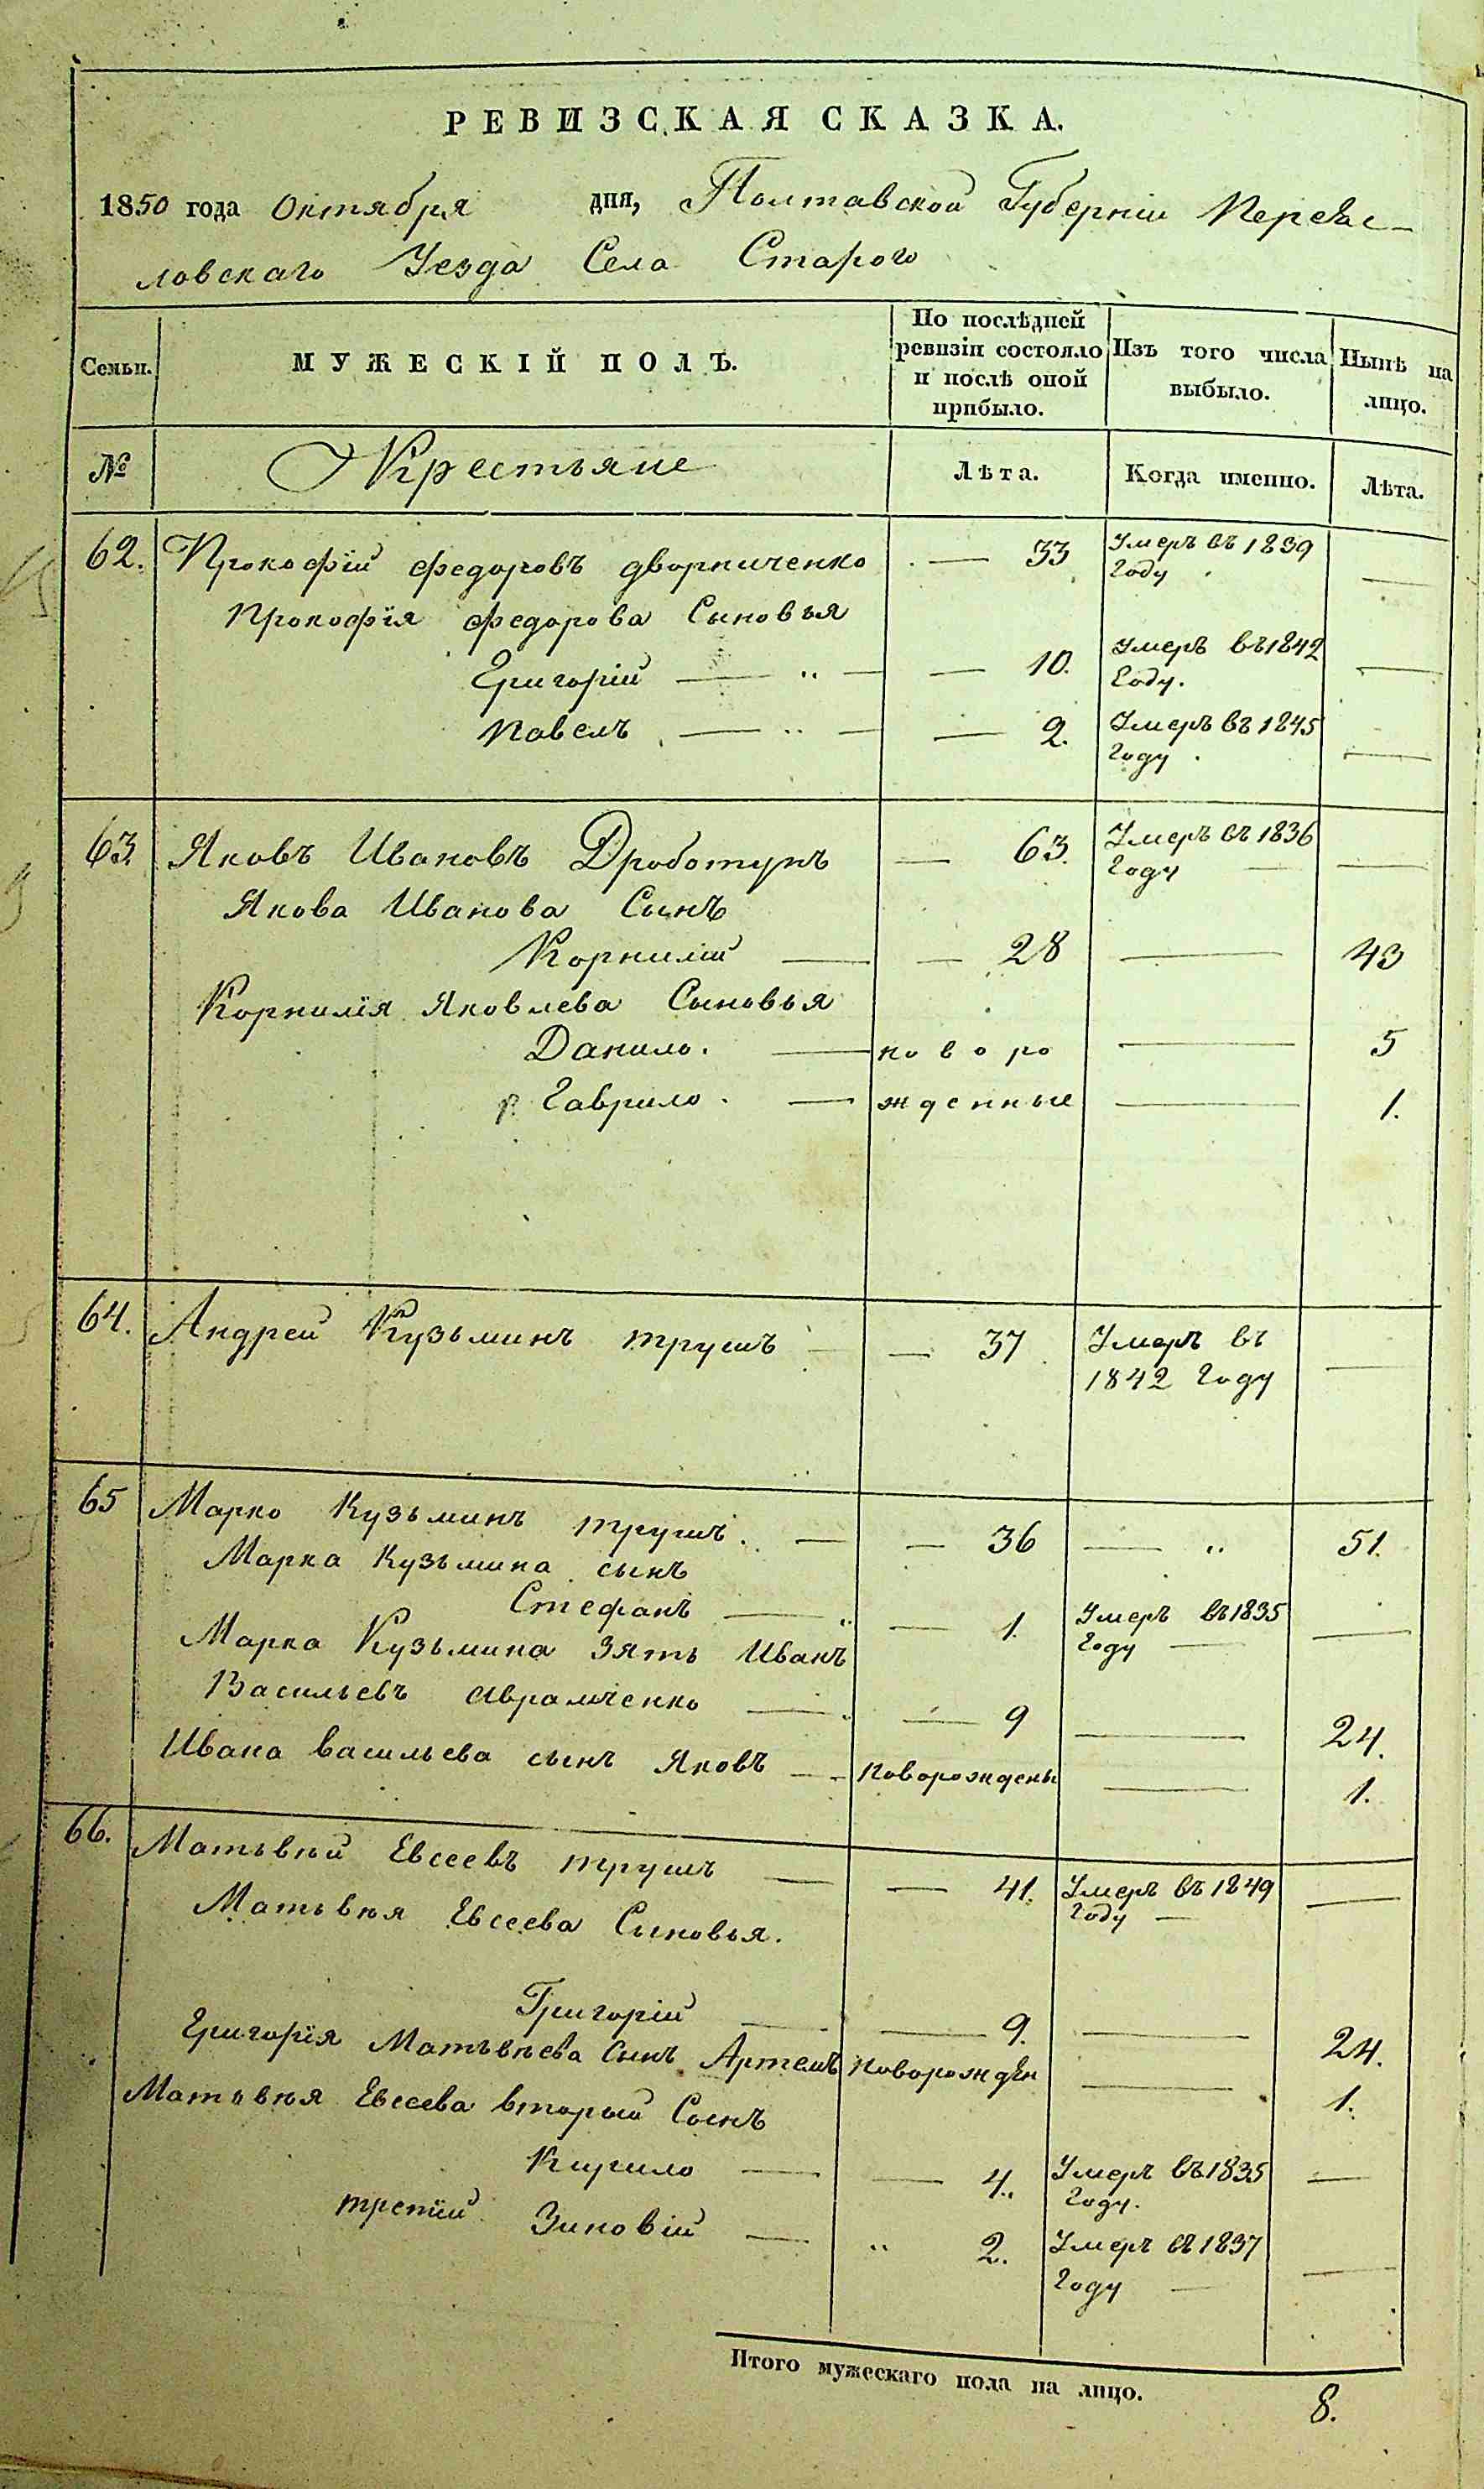 РЕВИЗСКАЯ СКАЗКА.
1850 года Октября дня, Полтавской Губерніи Переяс-
ловскаго Уезда Села Старого
Семьи. МУЖЕСКІЙ ПОЛЪ. По послѣдней ревизіи состояло и послѣ оной прибыло. Изъ того числа выбыло. Нынѣ на лицо.
№ Крестьяне Лѣта. Когда именно. Лѣта.
62. Прокофій Федоровъ дворниченко — 33 Умеръ въ 1839 Году —
Прокофія Федорова Сыновья
Григорій — 10. Умеръ въ 1842 Году. —
Павелъ — 2. Умеръ въ 1845 Году. —
63. Яковъ Ивановъ Дроботунъ — 63. Умеръ въ 1836 Году —
Якова Иванова Сынъ
Корнилій — 28 — 43
Корнилія Яковлева Сыновья
Данило. — новоро — 5
2. Гаврило. — жденные — 1.
64. Андрей Кузьминъ трушъ — 37 Умеръ въ 1842 Году —
65 Марко Кузьминъ трушъ. — 36 — 51.
Марка Кузьмина сынъ
Стефанъ — 1. Умеръ въ 1835 Году —
Марка Кузьмина Зять Иванъ
Васильевъ Аврамченко — 9 — 24.
Ивана Васильева сынъ Яковъ — новорождены — 1.
66. Матьвѣй Евсеевъ трушъ — 41. Умеръ въ 1849 Году —
Матьвѣя Евсеева Сыновья.
Григорій — 9. — 24.
Григорія Матьвѣева Сынъ Артемъ новорожден — 1.
Матьвѣя Евсеева вторый Сынъ
Кирило — 4. Умеръ въ 1835 Году. —
третій Зиновій — 2. Умеръ въ 1837 Году —
Итого мужескаго пола на лицо. 8.